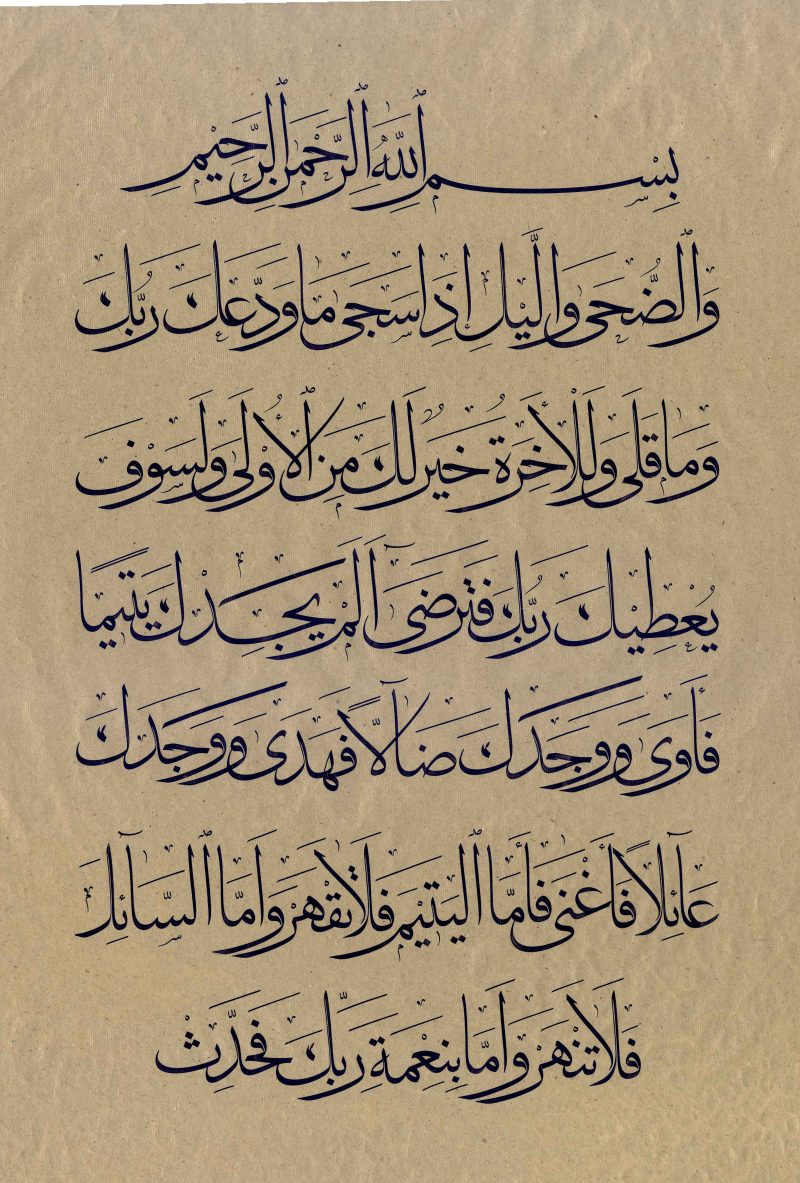 بِسْمِ ٱللَّهِ ٱلرَّحْمَنِ ٱلرَّحِيمِ
وَٱلضُّحَى وَالَّيْلِ إِذَا سَجَى مَا وَدَّعَكَ رَبُّكَ
وَمَا قَلَى وَلَلْأَخِرَةُ خَيْرٌ لَكَ مِنَ ٱلْأُوْلَى وَلَسَوْفَ
يُعْطِيكَ رَبُّكَ فَتَرْضَى أَلَمْ يَجِدْكَ يَتِيمًا
فَأَوَى وَوَجَدَكَ ضَآلًّا فَهَدَى وَوَجَدَكَ
عَآئِلًا فَأَغْنَى فَأَمَّا ٱلْيَتِيمَ فَلَا تَقْهَرْ وَأَمَّا ٱلسَّآئِلَ
فَلَا تَنْهَرْ وَأَمَّا بِنِعْمَةِ رَبِّكَ فَحَدِّثْ